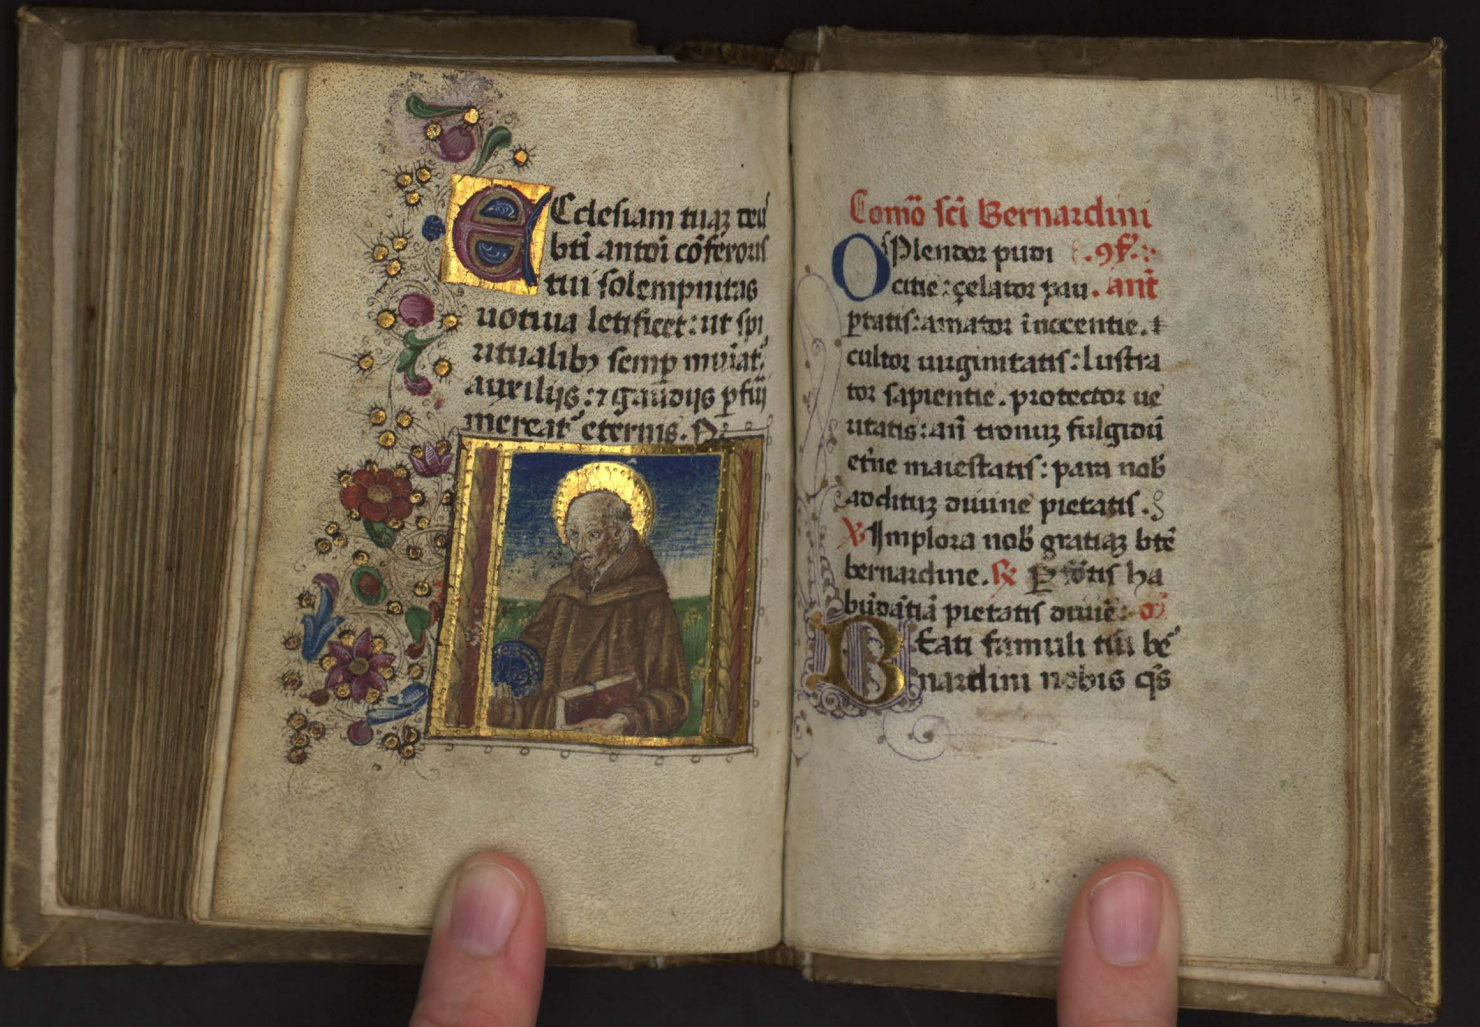 Ecclesiam tuaꝫ deꝰ
bti᷑ antoi᷑ cōfessoris
tui solempnitas
uotiua letificet: ut spi
ritualibꝫ semp muniat᷑
auxilijs: ⁊ gaudijs pfrui
mereat᷑ eternis. P
Comō sci᷑ Bernardini
O Splendor pudi .ꝯf.
citie: çelator pau. ant̄
ꝑtatis: amator inocentie. ⁊
cultor uirginitatis: lustra
tor sapientie. protector ue
ritatis: an̄ tronuꝫ fulgidū
et̄ne maiestatis: para nob̄
aditūꝫ diuine pietatis.
℣ Implora nob̄ gratiaꝫ bt̄e
bernardine. ℟ ha
būdātiā pietatis diuīe: oō
BEati famuli tui be
nardini nobis qs̄